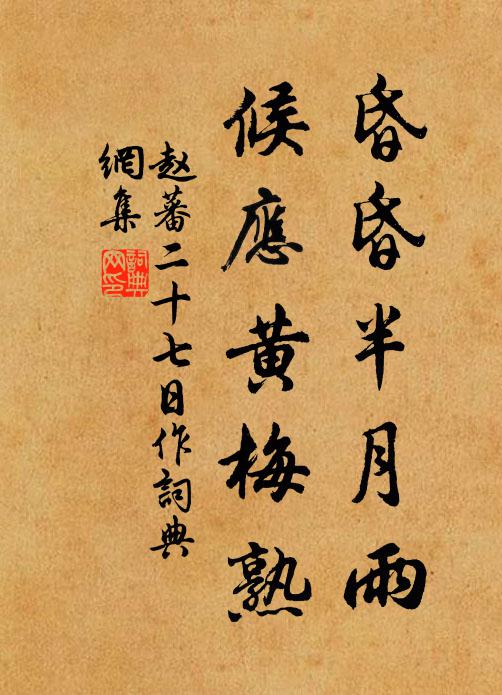 昏昏半月雨
候應黄梅熟
赵蕃二十七日作詞典
網集
詞典
网印